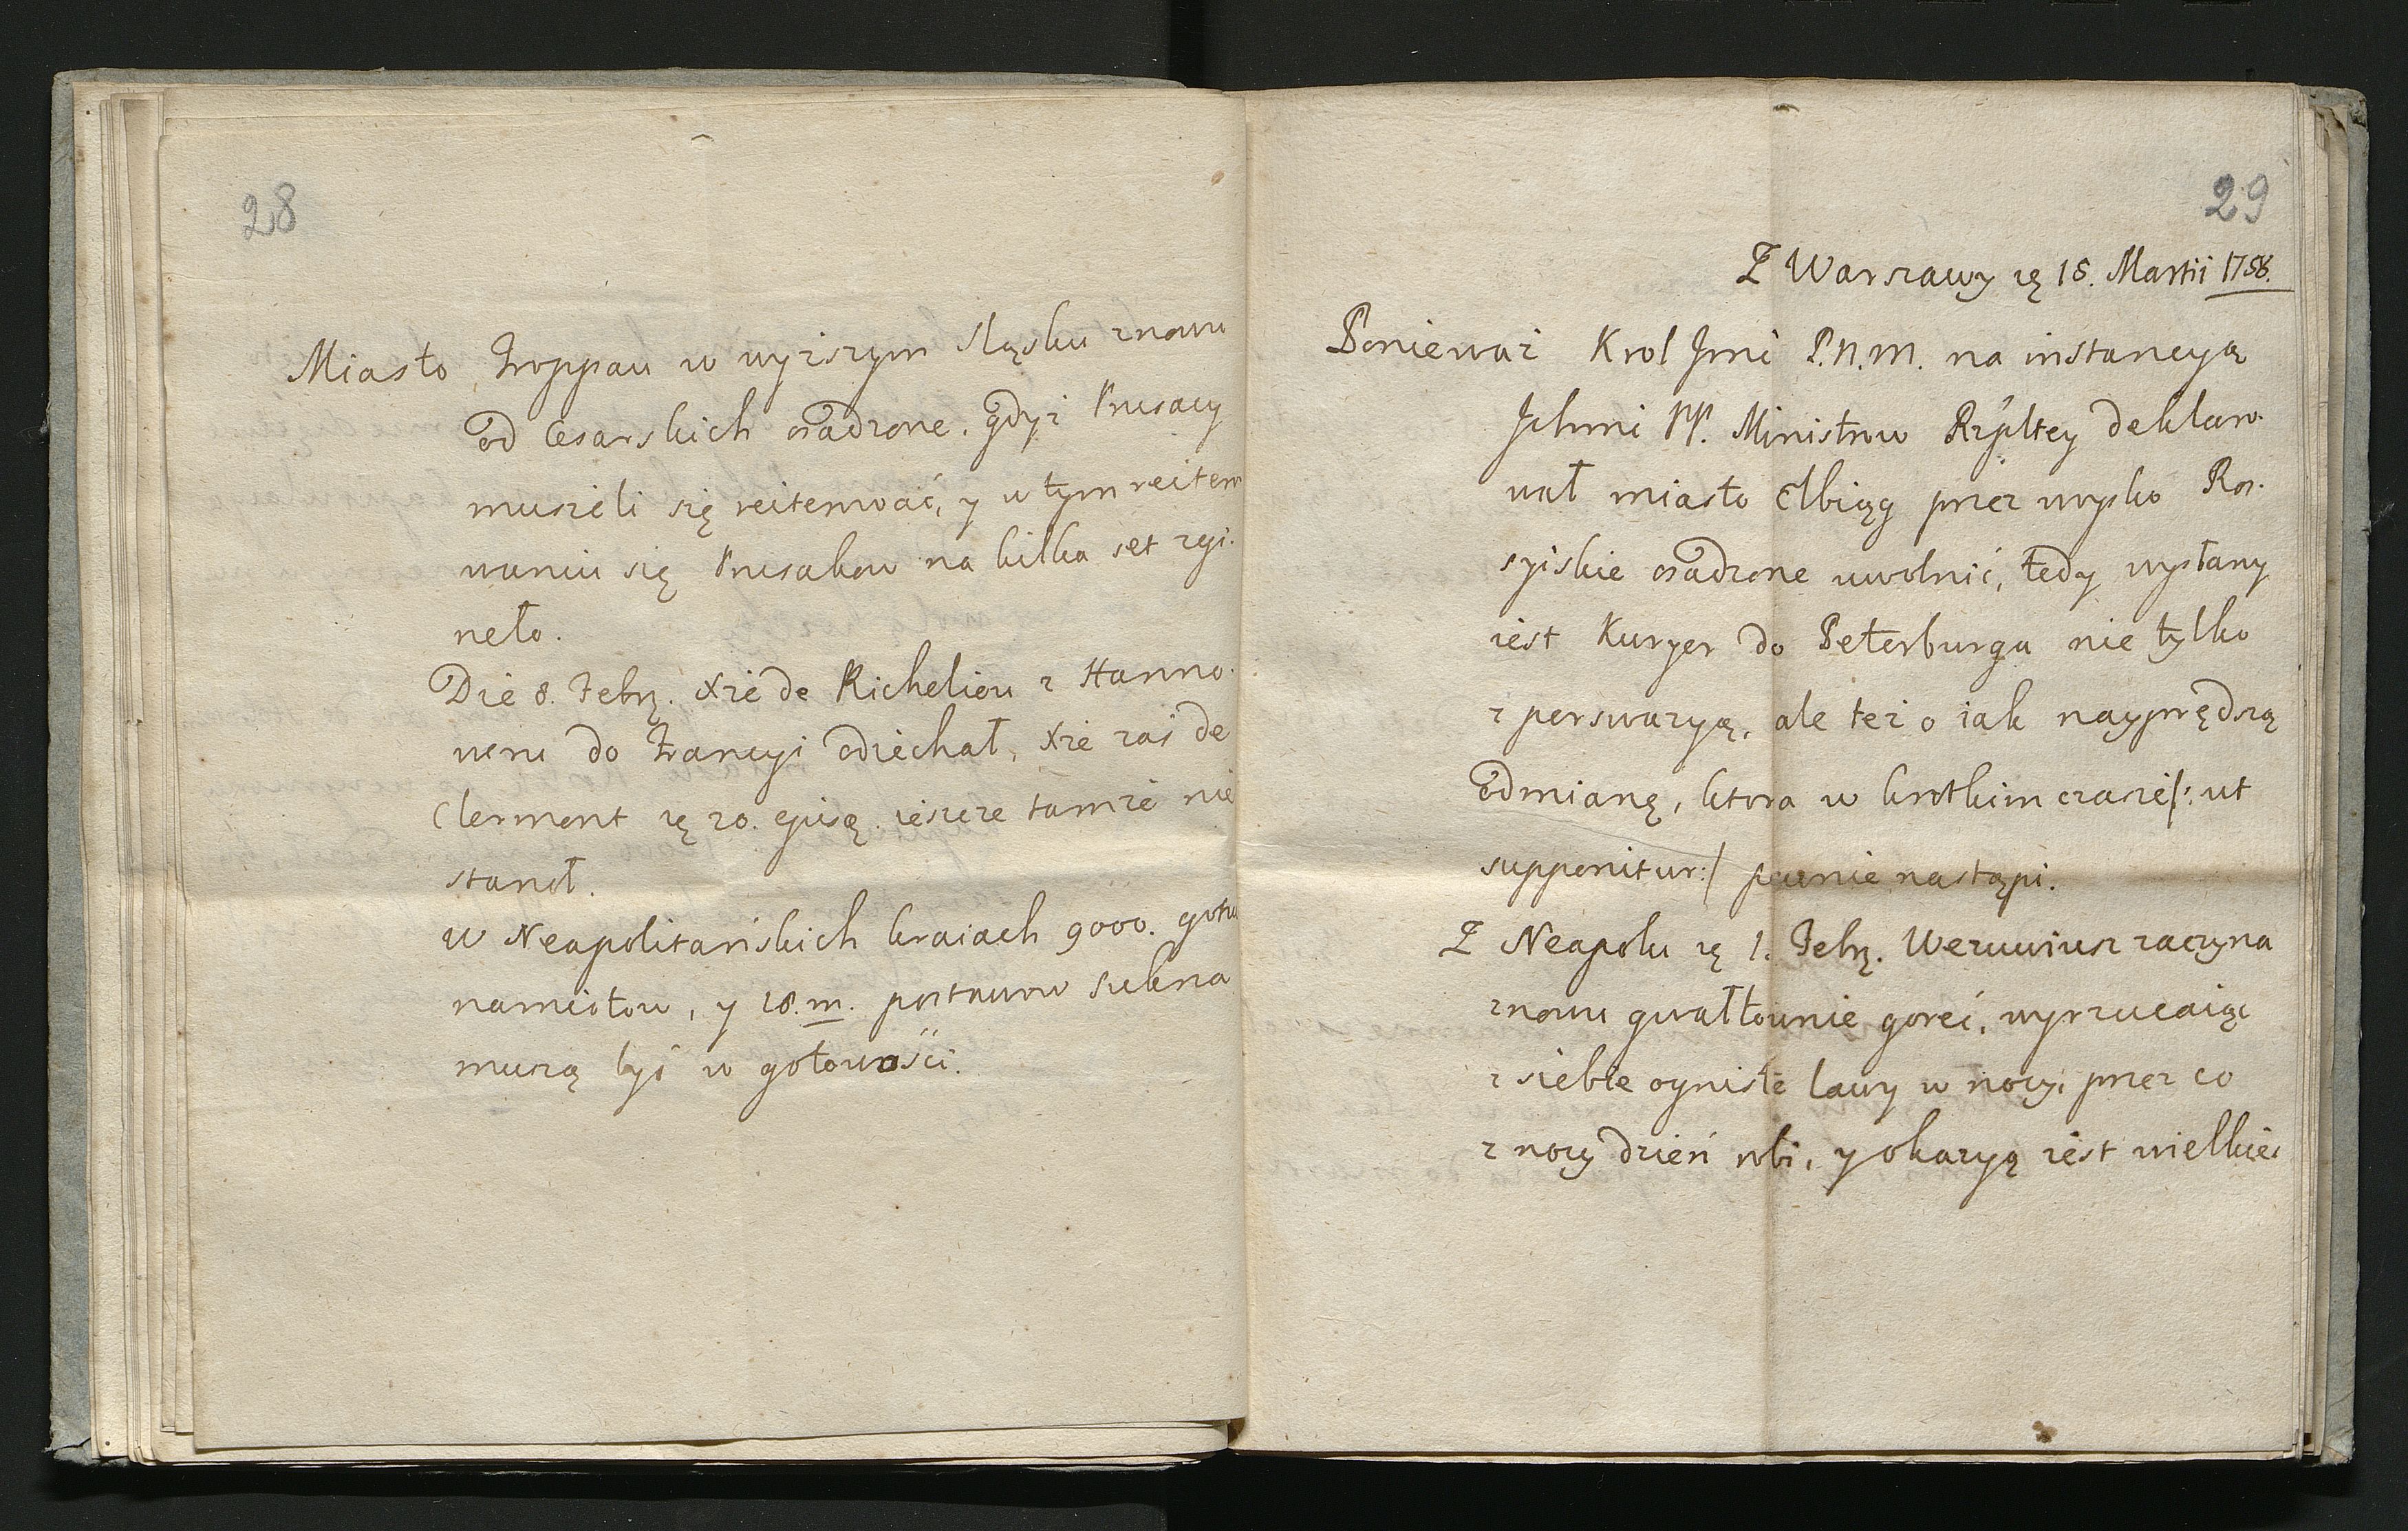 28
Miasto Troppau w wyższym Sląsku znowu
od Cesarskich osadzone, gdyż Prusacy
musieli się reiterować, y w tym reitero
waniu się Prusakow na kilka set zgi-
neło.
Die 8. Febrij. Xże de Richelieu z Hanno-
weru do Francyi odiechał, Xże zaś de
Clermont zę 20. ejusę. ieszcze tamże nie
stanoł.
W Neapolitańskich kraiach 9000. gotu
namiotow, y 18. m. postawow sukna
muszą być w gotowości.
29
Z Warszawy zę 15. Martii 1758.
Ponieważ Krol Jmć P.N.M. na instancyą
Jchmć PP. Ministrow Rzpltey deklaro-
wał miasto Elbiąg przez woysko Ros-
syiskie osadzone uwolnić, tedy wysłany
iest Kuryer do Peterburga nie tylko
z perswazyą, ale też o iak nayprędszą
odmianę, ktora w krotkim czasie /: ut
supponitur :/ pewnie nastąpi.
Z Neapolu zę 1. Febrij. Wezuwiusz zaczyna
znowu gwałtownie goreć, wyrzucaiąc
z siebie ogniste lawy w nocy, przez co
z nocy dzień robi, y okazyą iest wielkiei